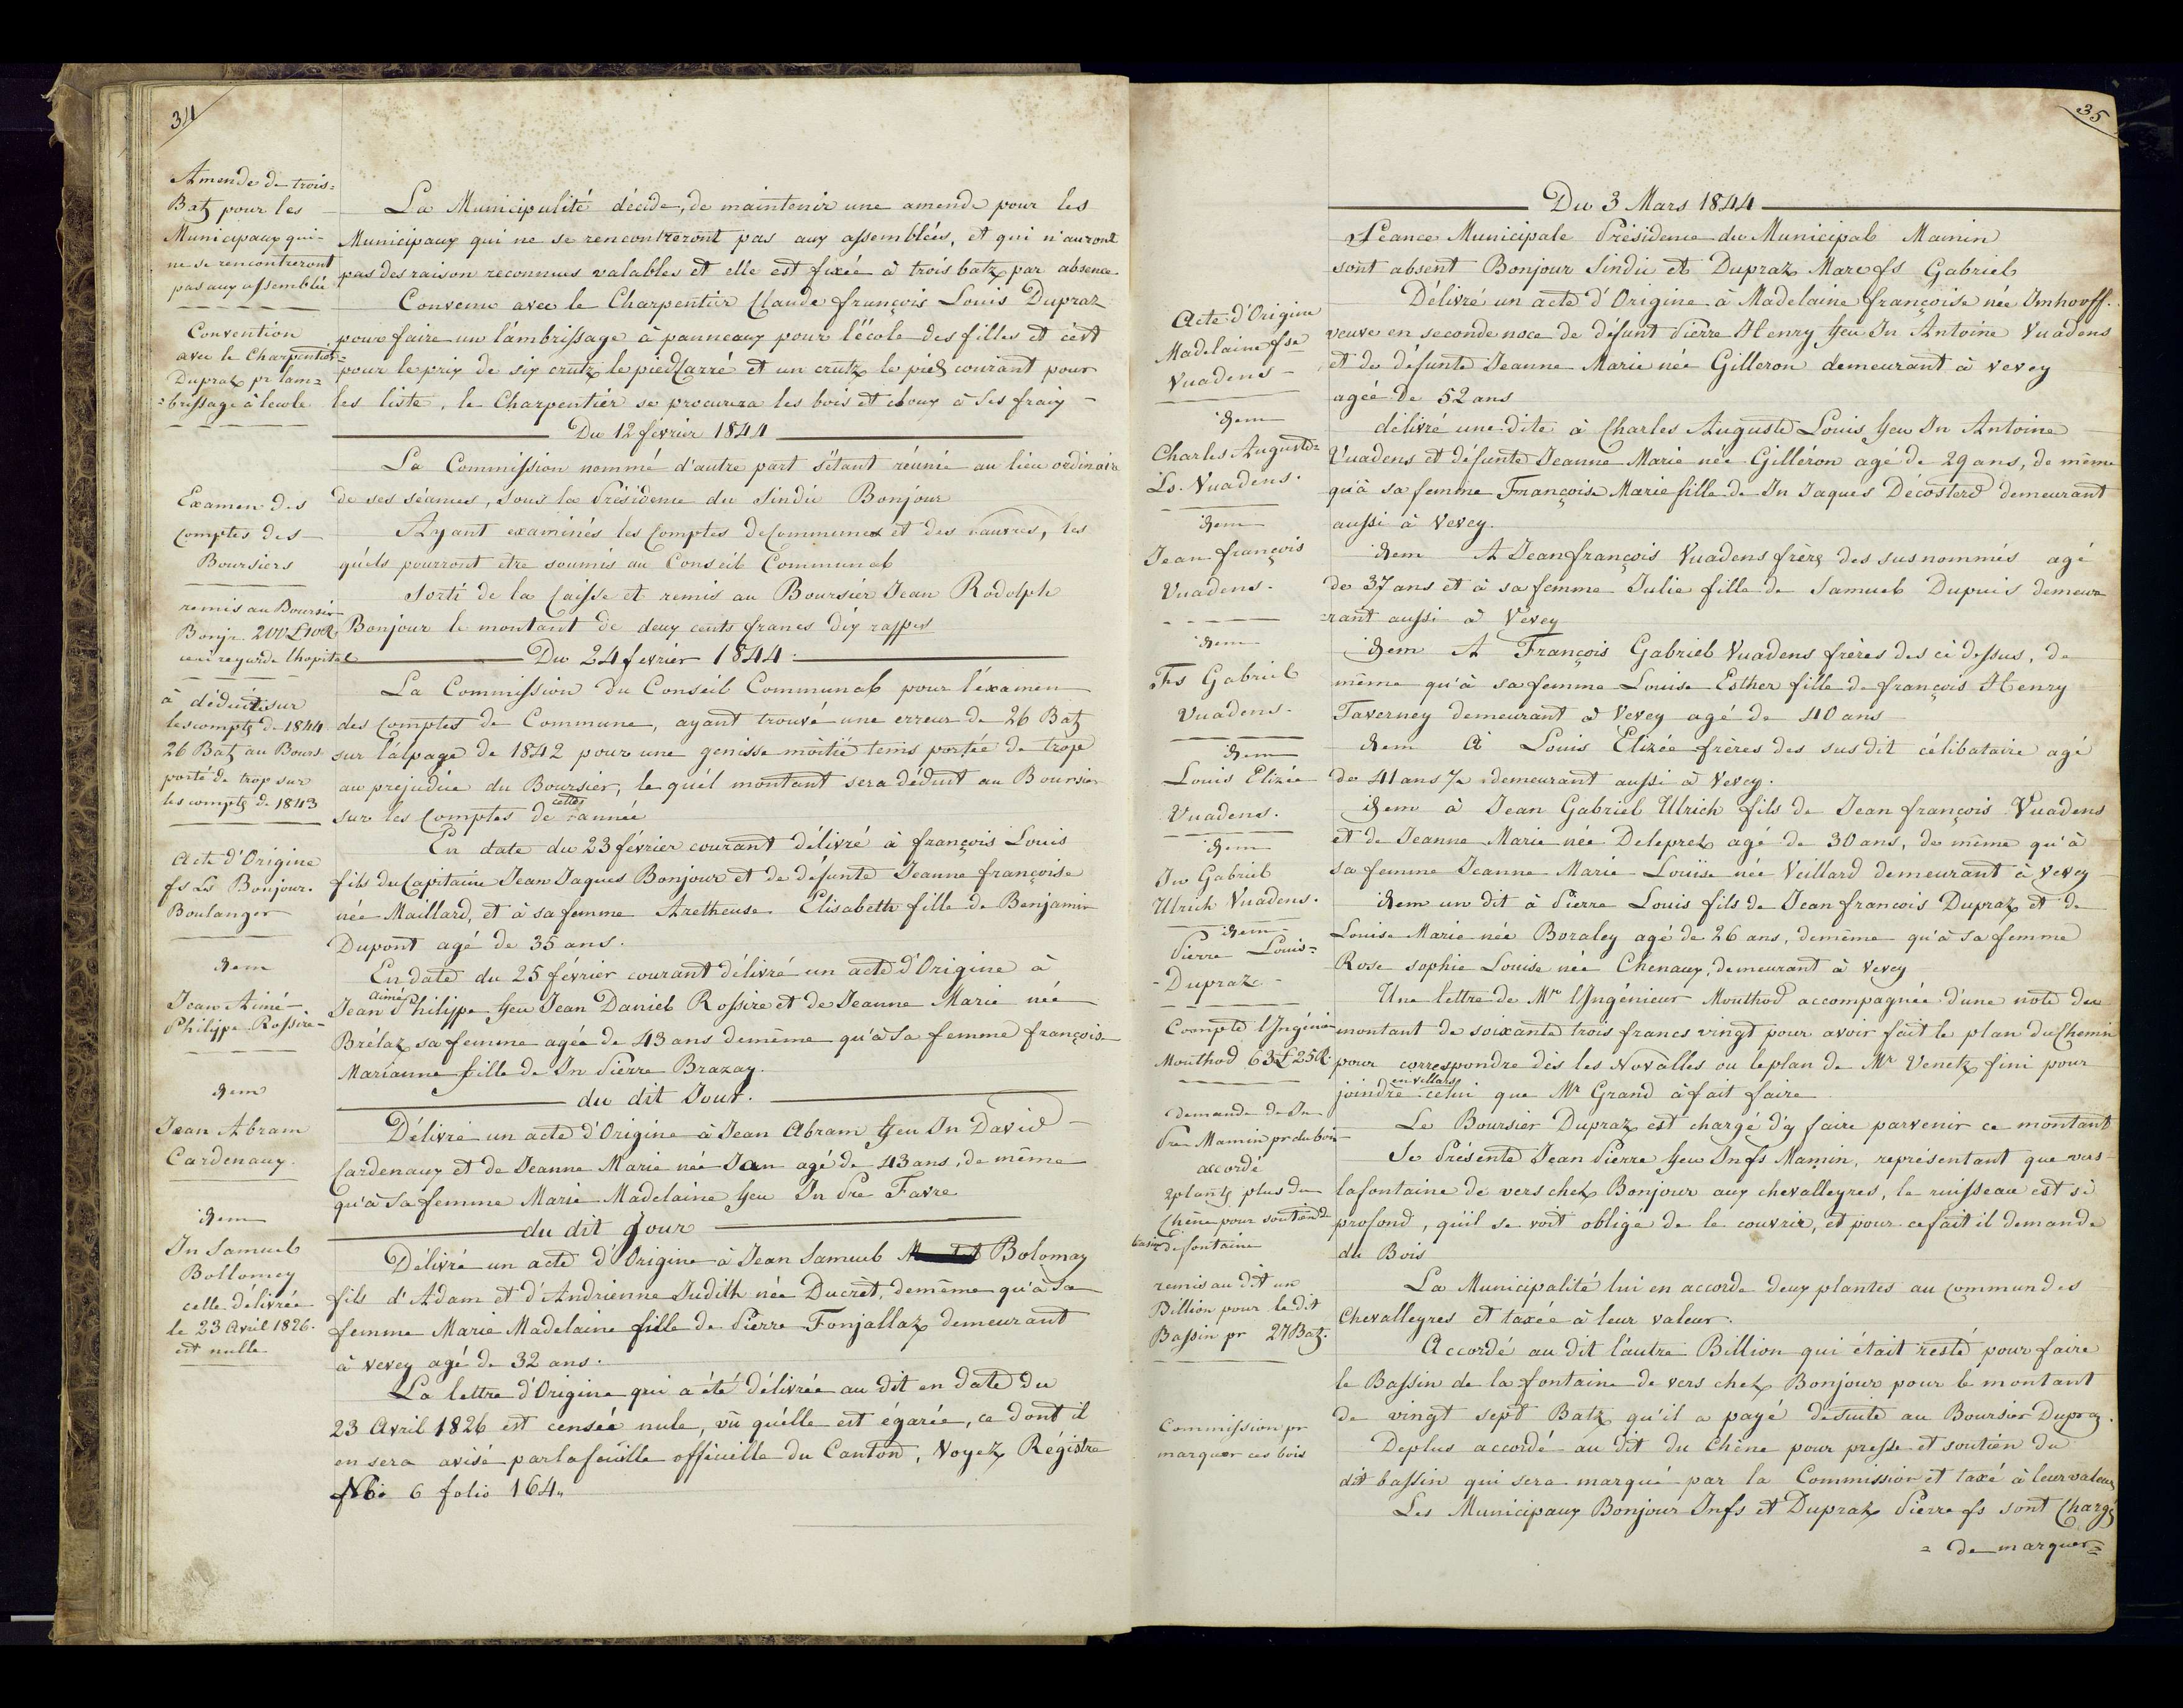 34
Amende de trois=
Batz pour les
Municipaux qui
ne se rencontreront
pas aux assemblée
Convention
avec le Charpentier
Dupraz pr lam=
=brissage à lecole
Examen des
comptes des
Boursiers
remis au Boursier
Bonjr. 200 L 10 R
ceci regarde lhopital
à déduire sur
les compts de 1844
26 Batz au Bours
porté de trop sur
les compts de 1843
Acte d'Origine
fs Ls Bonjour.
Boulanger
idem
Jean Aimé
Philippe Rossire
idem
Jean Abram
Cardenaux.
idem
Jn Samuel
Bollomey
celle délivrée
le 23 Avril 1826.
est nulle
La Municipalité décide, de maintenir une amende pour les
Municipaux qui ne se rencontreront pas aux assemblées, et qui n'auront
pas des raison reconnues valables et elle est fixée à trois batz par absence
Convenu avec le Charpentier Claude françois Louis Dupraz
pour faire un lambrissage à panneaux pour l'école des filles et c'est
pour le prix de six crutz le pied Carré et un crutz le pied courant pour
les liste, le Charpentier se procurera les bois et cloux à ses fraix
Du 12 février 1844
La Commission nommé d'autre part s'étant réunie au lieu ordinaire
de ses séances, sous la Présidence du Sindic Bonjour
Ayant examinés les Comptes de Communes et des pauvres, les
quels pourront etre soumis au Conseil Communal
Sorti de la Caisse et remis au Boursier Jean Rodolph
Bonjour le montant de deux cents francs dix rappes
Du 24 fevrier 1844.
La Commission du Conseil Communal pour l'examen
des Comptes de Commune, ayant trouvé une erreur de 26 Batz
sur l'alpage de 1842 pour une genisse moitié tems portée de trope
au prejudice du Boursier, le quel montant sera déduit au Boursier
sur les Comptes de cette année
En date du 23 février courant délivré à françois Louis
fils du Capitaine Jean Jaques Bonjour et de défunte Jeanne françoise
née Maillard, et à sa femme Aretheuse Elisabeth fille de Benjamin
Dupont agé de 35 ans.
En date du 25 février courant délivré un acte d'Origine à
Jean aimé Philippe feu Jean Daniel Rossire et de Jeanne Marie née
Brélaz sa femme agée de 43 ans demême qu'à sa femme françois
Marianne fille de Jn Pierre Brazay.
du dit Jour.
Délivré un acte d'Origine à Jean Abram feu Jn David
Cardenaux et de Jeanne Marie née Jan agé de 43 ans, de même
qu'à sa femme Marie Madelaine feu Jn Pre Favre
du dit Jour
Délivré un acte d'Origine à Jean Samuel Bolomay
fils d'Adam et d'Andrienne Judith née Ducret, demême qu'à sa
femme Marie Madelaine fille de Pierre Fonjallaz demeurant
à vevey agé de 32 ans.
La lettre d'Origine qui a été délivrée au dit en date du
23 Avril 1826 est censée nule, vû quélle est égarée, ce dont il
en sera avisé par la feuille officielle du Canton, Voyez Régistre
No: 6 folio 164.,
35
Acte d'Origine
Madelaine fse
Vuadens
idem
Charles Auguste=
Ls. Vuadens.
idem
Jean françois
Vuadens.
idem
Fs Gabriel
Vuadens.
idem
Louis Elizée
Vuadens.
idem
Jn Gabriel
Ulrich Vuadens.
idem
Pierre Louis=
Dupraz
Compte lIngénieu
Mouthod 63 L 25 R
demande de Jn
Pre Mamin pr du bois
accordé
2 plants plus du
Chêne pour soutien de
bassin de fontaine
remis au dit un
Billion pour le dit
Bassin pr 27 Batz.
Commission pr
marquer ces bois
Du 3 Mars 1844
Séance Municipale Présidence du Municipal Mamin
sont absent Bonjour Sindic et Dupraz Marc fs Gabriel
Délivré un acte d'Origine à Madelaine françoise née Imhooff.
veuve en seconde noce de défunt Pierre Henry feu Jn Antoine Vuadens
et de défunte Jeanne Marie née Gilleron demeurant à vevey
agée de 52 ans
délivré une dite à Charles Auguste Louis feu Jn Antoine
Vuadens et défunte Jeanne Marie née Gilléron agé de 29 ans, de même
qu'à sa femme Françoise Marie fille de Jn Jaques Décosterd demeurant
aussi à Vevey.
idem A Jean françois Vuadens frère des susnommés agé
de 37 ans et à sa femme Julie fille de Samuel Dupuis demeu=
=rant aussi à Vevey
idem A François Gabriel Vuadens frères des ci dessus, de
même qu'à sa femme Louise Esther fille de françois Henry
Taverney demeurant à Vevey agé de 40 ans
idem à Louis Elizée frères des sus dit célibataire agé
de 41 ans demeurant aussi à Vevey.
idem à Jean Gabriel Ulrich fils de Jean françois Vuadens
et de Jeanne Marie née Deleprez agé de 30 ans, de même qu'à
sa femme Jeanne Marie Louise née Veillard demeurant à Vevey
idem un dit à Pierre Louis fils de Jean francois Dupraz et de
Louise Marie née Boraley agé de 26 ans, demême qu'à sa femme
Rose sophie Louise née Chenaux, demeurant à Vevey
Une lettre de Mr lIngénieur Mouthod accompagnée d'une note du
montant de soixante trois francs vingt pour avoir fait le plan du Chemin
pour correspondre dès les Novalles ou le plan de Mr Venetz fini pour
joindre en villars celui que Mr Grand à fait faire
Le Boursier Dupraz est chargé d'y faire parvenir ce montant
Se Présente Jean Pierre feu Jn fs Mamin, représentant que vers
lafontaine de vers chez Bonjour aux chevalleyres, le ruisseau est si
profond, qu'il se voit oblige de le couvrir, et pour ce fait il demande
du Bois
La Municipalité lui en accorde deux plantes au commun des
Chevalleyres et taxée à leur valeur.
Accordé au dit l'autre Billion qui était resté pour faire
le Bassin de la fontaine de vers chez Bonjour pour le montant
de vingt sept Batz qu'il a payé desuite au Boursier Dupraz.
Deplus accordé au dit du Chêne pour presse et soutien du
dit bassin qui sera marqué par la Commission et taxé à leur valeur
Les Municipaux Bonjour Jn fs et Dupraz Pierre fs sont Chargé
= de marquer=